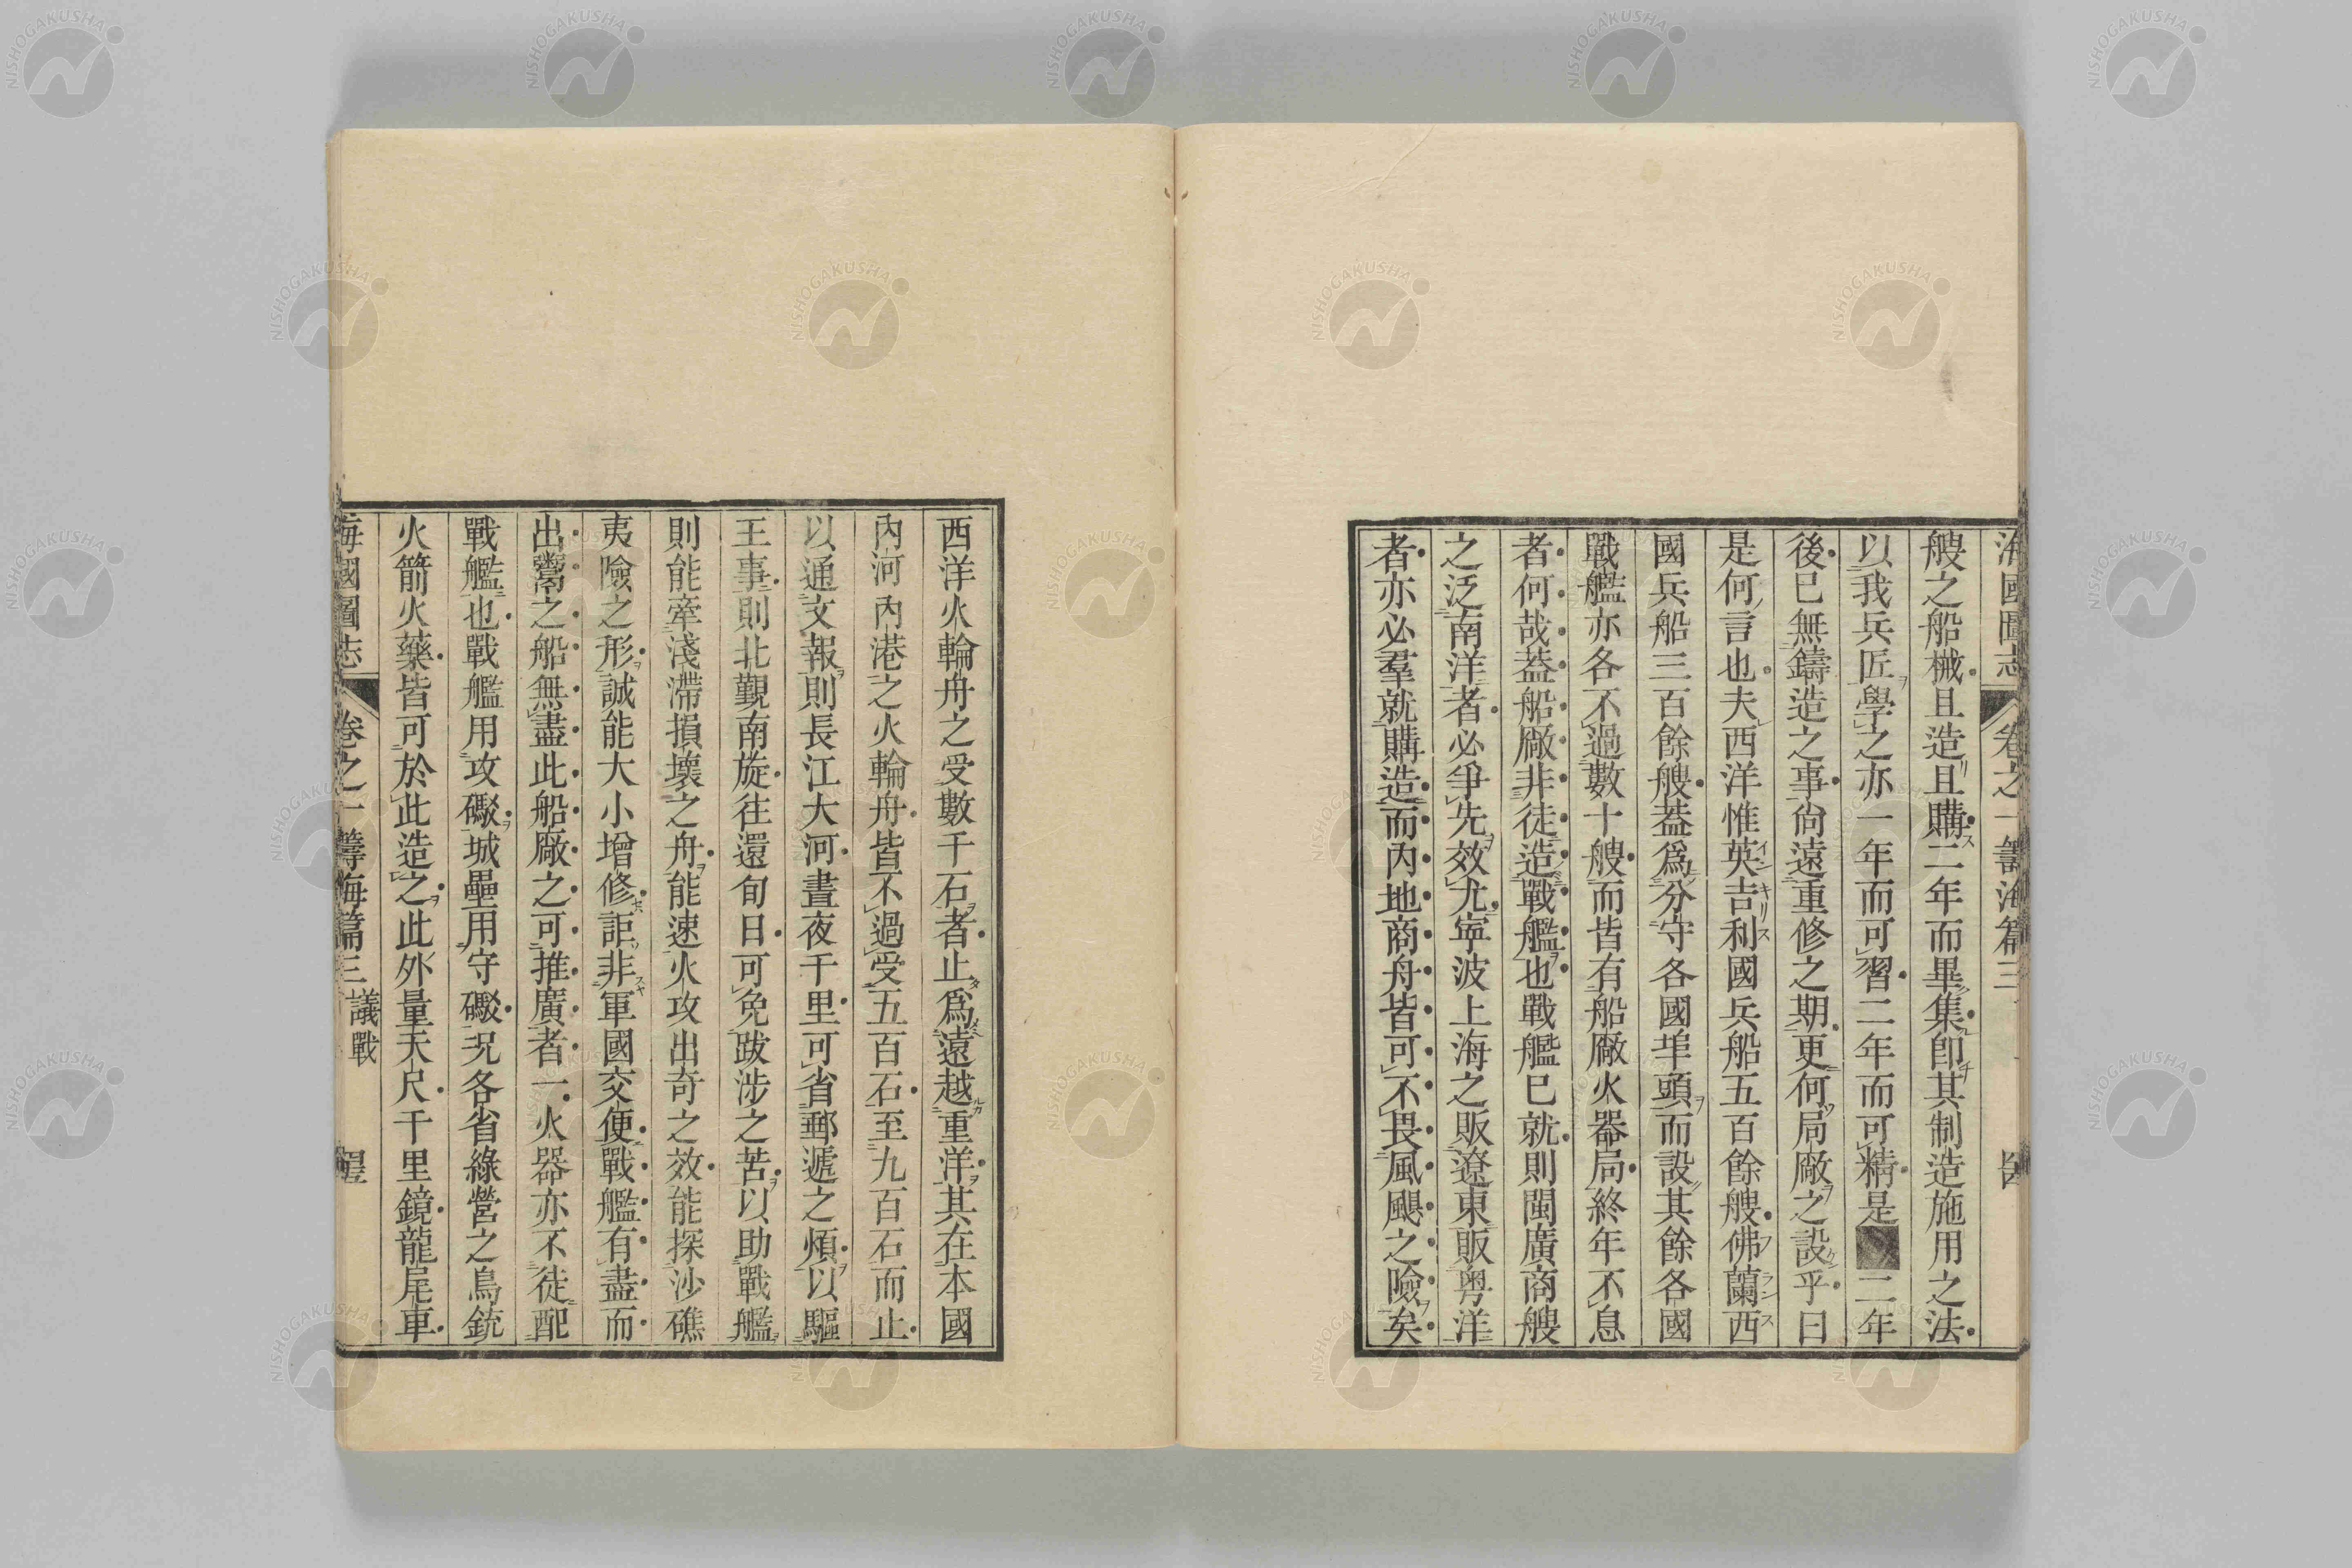 海國圖志 卷之一 籌海篇三
艘之船械且造且購二年而畢集即其制造施用之法
以我兵匠學之亦一年而可習二年而可精是二年
後已無鑄造之事尚遠重修之期更何局廠之設乎曰
是何言也夫西洋惟英吉利國兵船五百餘艘佛蘭西
國兵船三百餘艘葢爲分守各國埠頭而設其餘各國
戰艦亦各不過數十艘而皆有船廠火器局終年不息
者何哉葢船廠非徒造戰艦也戰艦已就則閩廣商艘
之泛南洋者必爭先效尤寧波上海之販遼東販粵洋
者亦必羣就購造而內地商舟皆可不畏風颶之險矣
西洋火輪舟之受數千石者止爲遠越重洋其在本國
內河內港之火輪舟皆不過受五百石至九百石而止
以通文報則長江大河晝夜千里可省郵遞之煩以驅
王事則北覲南旋往還旬日可免跋涉之苦以助戰艦
則能牽淺滯損壞之舟能速火攻出奇之效能探沙礁
夷險之形誠能大小增修詎非軍國交便戰艦有盡而
出鬻之船無盡此船廠之可推廣者一火器亦不徒配
戰艦也戰艦用攻礮城壘用守礮況各省綠營之鳥銃
火箭火藥皆可於此造之此外量天尺千里鏡龍尾車
海國圖志 卷之一 籌海篇三 議戰
NISHOGAKUSHA